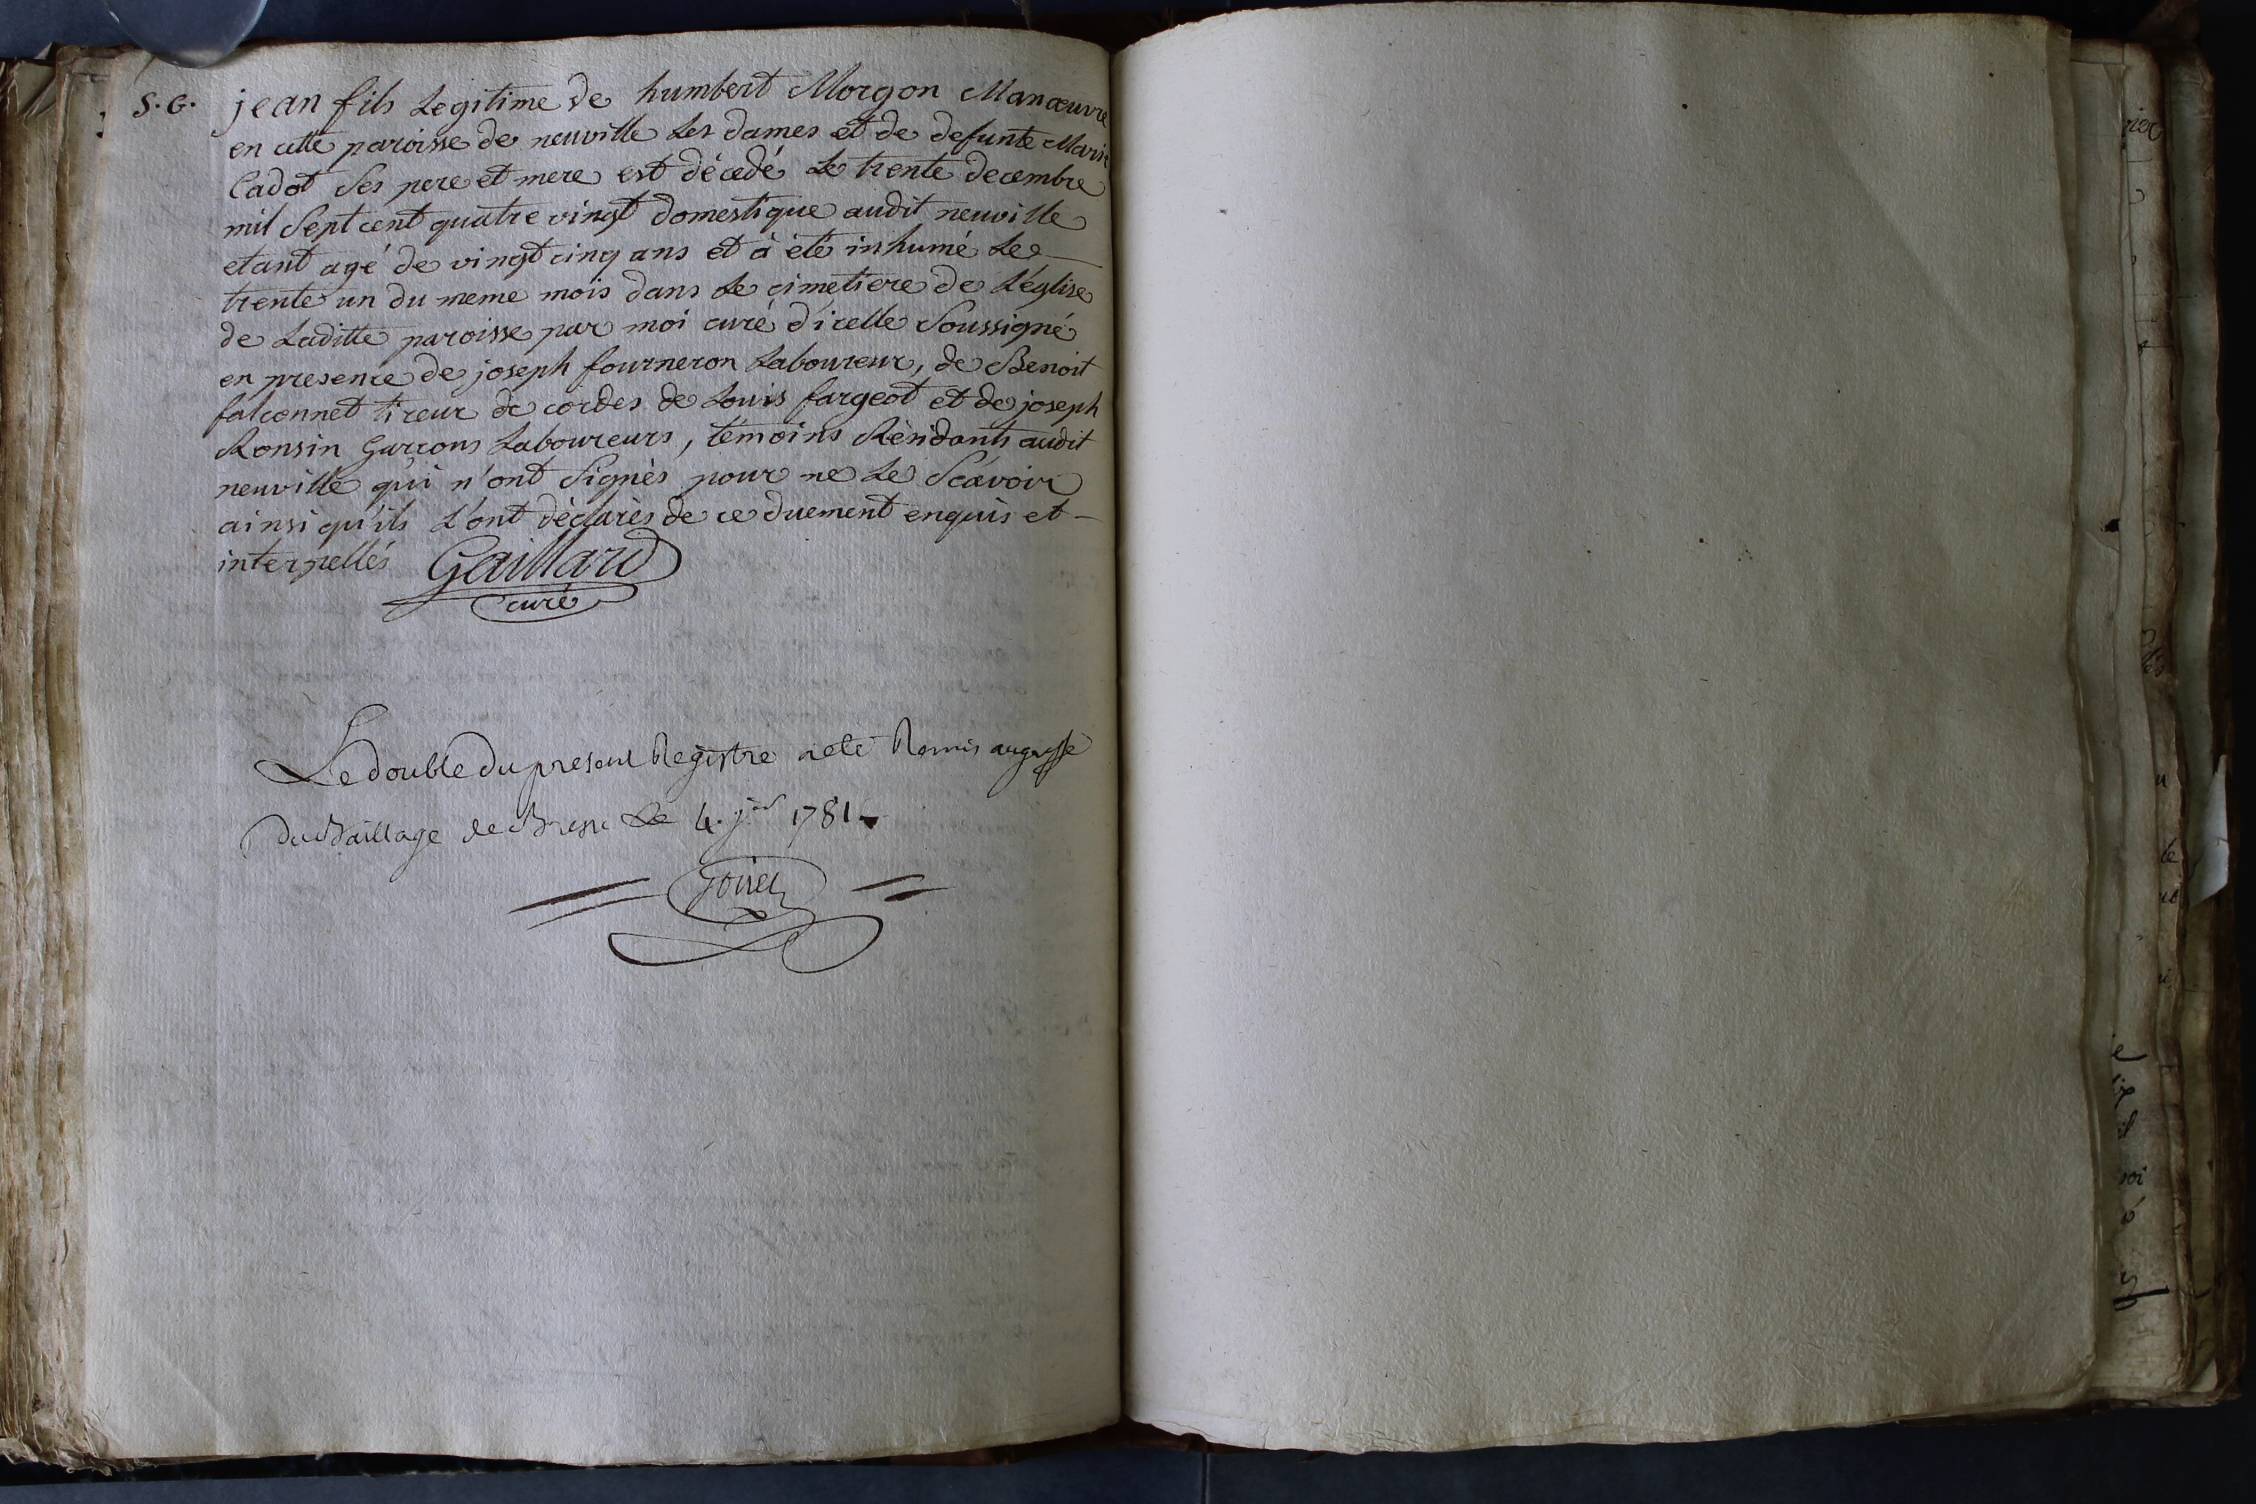 S. G. jean fils Legitime de humbert Morgon Manœuvre
en cette paroisse de neuville Les dames et de defunte Marie
Cadot Ses pere et mere est décedé Le trente decembre
mil Sept cent quatre vingt domestique audit neuville
etant agé de vingt cinq ans et à été inhumé Le
trente un du meme mois dans Le cimetiere de L'église
de Laditte paroisse par moi curé d'icelle Soussigné
en presence de joseph fourneron Laboureur, de Benoit
falconnet tireur de cordes de Louis fargeot et de joseph
Ronsin Garcons Laboureurs, témoins Résidants audit
neuville qui n'ont Signés pour ne Le Scavoir
ainsi qu'ils L'ont déclarés de ce duement enquis et
interpellés Gaillard
curé
Le double du present Registre a eté Remis au greffe
du Baillage de Bresse Le 4. jer 1781